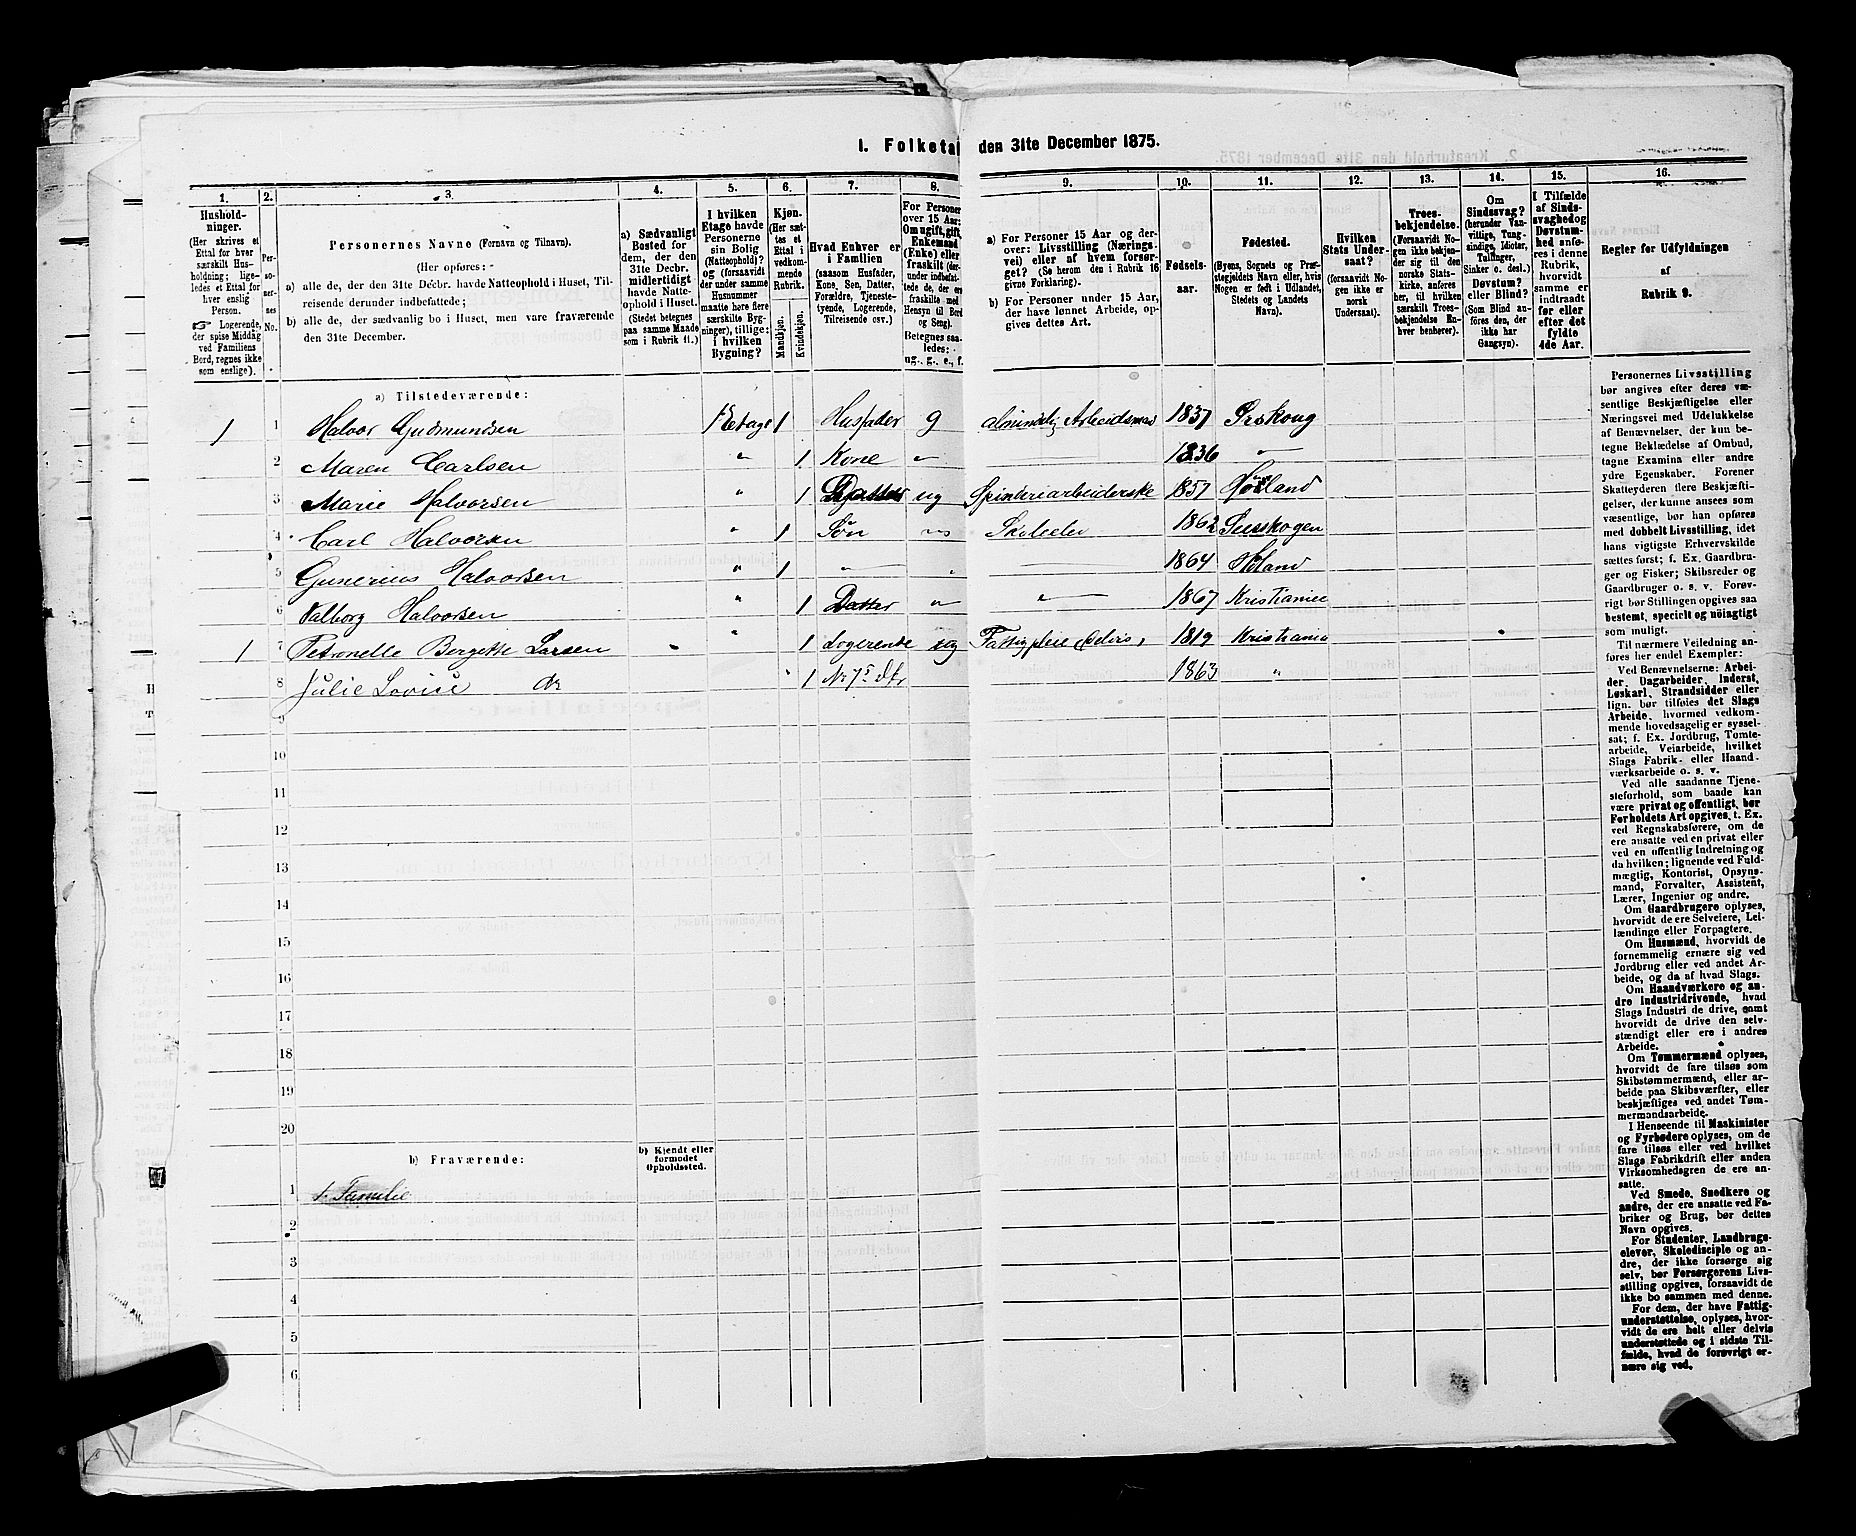 1. Folketal den 31te December 1875.
1. 2. 3. 4. 5. 6. 7. 8. 9. 10. 11. 12. 13. 14. 15. 16.
Hushold-
ninger.
(Her skrives et
Ettal for hver
særskilt Hus-
holdning; lige-
ledes et Ettal for
hver enslig
Person.
☞ Logerende,
der spise Middag
ved Familiens
Bord, regnes ikke
som enslige).
Per-
so-
ner-
nes
No.
Personernes Navne (Fornavn og Tilnavn).
(Her opføres:
a) alle de, der den 31te Decbr. havde Natteophold i Huset, Til-
reisende derunder indbefattede;
b) alle de, der sædvanlig bo i Huset, men vare fraværende
den 31te December.
a) Sædvanligt
Bosted for
dem, der den
31te Decbr.
midlertidigt
havde Natte-
ophold i Huset.
(Stedet betegnes
paa samme Maade
som i Rubrik 11.)
I hvilken
Etage havde
Personerne
sin Bolig
(Natteophold)?
og (forsaavidt
der under samme
Husnummer
maatte høre flere
særskilte Byg-
ninger), tillige:
i hvilken
Bygning?
Kjøn.
(Her sæt-
tes et
Ettal i
vedkom-
mende
Rubrik.
Mandkjøn.
Kvindekjøn.
Hvad Enhver er
i Familien
(saasom Husfader,
Kone, Søn, Datter,
Forældre, Tjeneste-
tyende, Logerende,
Tilreisende osv.)
For Personer
over 15 Aar:
Om ugift, gift,
Enkemand
(Enke) eller
fraskilt (der-
under indbefat-
tede de, der ere
fraskilte med
Hensyn til Bord
og Seng).
Betegnes saa-
ledes:
ug., g., e., f.
a) For Personer 15 Aar og der-
over: Livsstilling (Nærings-
vei) eller af hvem forsør-
get? (Se herom den i Rubrik 16
givne Forklaring).
b) For Personer under 15 Aar,
der have lønnet Arbeide, op-
gives dettes Art.
Fødsels-
aar.
Fødested.
(Byens, Sognets og Præ-
stegjeldets Navn eller, hvis
Nogen er født i Udlandet,
Stedets og Landets
Navn).
Hvilken
Stats Under-
saat?
(forsaavidt No-
gen ikke er
norsk
Undersaat).
Troes-
bekjendelse.
(Forsaavidt No-
gen ikke bekjen-
der sig til den
norske Stats-
kirke, anføres
her, til hvilken
særskilt Troes-
bekjendelse En-
hver benhører).
Om
Sindssvag?
(herunder Van-
vittige, Tung-
sindige, Idioter,
Tullinger,
Sinker o. desl.)
Døvstum?
eller Blind?
(Som Blind an-
føres den, der
ikke har
Gangsyn).
I Tilfælde
af Sinds-
svaghed og
Døvstum-
hed anfø-
res i denne
Rubrik,
hvorvidt
samme er
indtraadt
før eller
efter det
fyldte
4de Aar.
Regler for Udfyldningen
af
Rubrik 9.
a) Tilstedeværende:
1 1 Halvor Gudmundsen 1 Etage 1 Husfader g almindelig Arbeidsmand 1837
2 Maren Carlsen " 1 Kone " 1836 "
3 Marie Halvorsen " 1 Datter ug Spinderiarbeiderske 1857
4 Carl Halvorsen " 1 Søn 1862
5 Gunerius Halvorsen " 1 " " 1864 Høland
6 Valborg Halvorsen " 1 Datter " " 1867 Kristiania
1 7 Petronelle Bergette Larsen " 1 Logerende ug 1819 Kristiania
8 Julie Lovise do " 1 No 7s dtr 1863 "
9
10
11
12
13
14
15
16
17
18
19
20
b) Fraværende:
b) Kjendt eller
formodet
Opholdssted.
1 1. Familie
2
3
4
5
6
Personernes Livsstilling
bør angives efter deres væ-
sentlige Beskjæftigelse eller
Næringsvei med Udelukkelse
af Benævnelser, der kun be-
tegne Beklædelse af Ombud,
tagne Examina eller andre
ydre Egenskaber. Forener
Skatteyderen flere Beskjæfti-
gelser, der kunne ansees som
væsentlige, bør han opføres
med dobbelt Livsstilling, idet
hans vigtigste Erhvervskilde
sættes først; f. Ex. Gaardbru-
ger og Fisker; Skibsreder og
Gaardbruger o. s. v. Forøv-
rigt bør Stillingen opgives saa
bestemt, specielt og nøiagtigt
som muligt.
Til nærmere Veiledning an-
føres her endel Exempler:
Ved Benævnelserne: Arbei-
der, Dagarbeider, Inderst,
Løskarl, Strandsidder eller
lign. bør tilføies det Slags
Arbeide, hvormed vedkom-
mende hovedsagelig er syssel-
sat; f. Ex. Jordbrug, Tomte-
arbeide, Veiarbeide, hvilket
Slags Fabrik- eller Haand-
værksarbeide o. s. v.
Ved alle saadanne Tjene-
steforhold, som baade kan
være privat og offentligt, bør
Forholdets Art opgives, t. Ex.
ved Regnskabsførere, om de
ere ansatte ved en privat eller
ved en offentlig Indretning og
da hvilken; lignende ved Fuld-
mægtig, Kontorist, Opsyns-
mand, Forvalter, Assistent,
Lærer, Ingeniør og andre.
Om Gaardbrugere oplyses,
hvorvidt de ere Selveiere, Lei-
lændinge eller Forpagtere.
Om Husmænd, hvorvidt de
fornemmelig ernære sig ved
Jordbrug eller ved andet Ar-
beide, og da af hvad Slags.
Om Haandværkere og an-
dre Industridrivende, hvad
Slags Industri de drive, samt
hvorvidt de drive den selv-
stændigt eller ere i andres
Arbeide.
Om Tømmermænd oplyses,
hvorvidt de fare tilsøs som
Skibstømmermænd, eller ar-
beide paa Skibsværfter, eller
beskjæftiges ved andet Tøm-
mermandsarbeide.
I Henseende til Maskinister
og Fyrbødere oplyses, om de
fare tilsøs eller ved hvilket
Slags Fabrikdrift eller anden
Virksomhedsgren de ere an-
satte.
Ved Smede, Snedkere og
andre, der ere ansatte ved Fa-
briker og Brug, bør dettes
Navn opgives.
For Studenter, Landbrugs-
elever, Skoledisciple og an-
dre, der ikke forsørge sig
selv, bør Forsørgerens Livs-
stilling opgives, forsaavidt de
ikke bo sammen med denne.
For dem, der have Fattig-
understøttelse, oplyses, hvor-
vidt de ere helt eller delvis
understøttede og i sidste Til-
fælde, hvad de forøvrigt er-
nære sig ved.